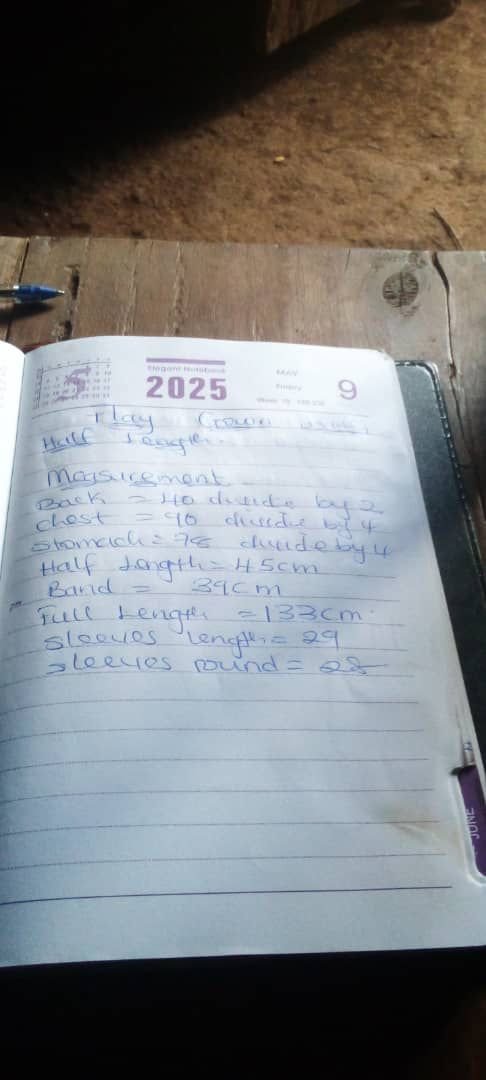 Elegant Notebook
2025
MAY
Friday
9
Flay Gown with
Half Length.
Measurement
Back = 40 divide by 2
Chest = 90 divide by 4
Stomach = 78 divide by 4
Half Length = 45cm
Band = 39cm
Full Length = 133cm.
Sleeves length = 29
Sleeves round = 28
JUNE